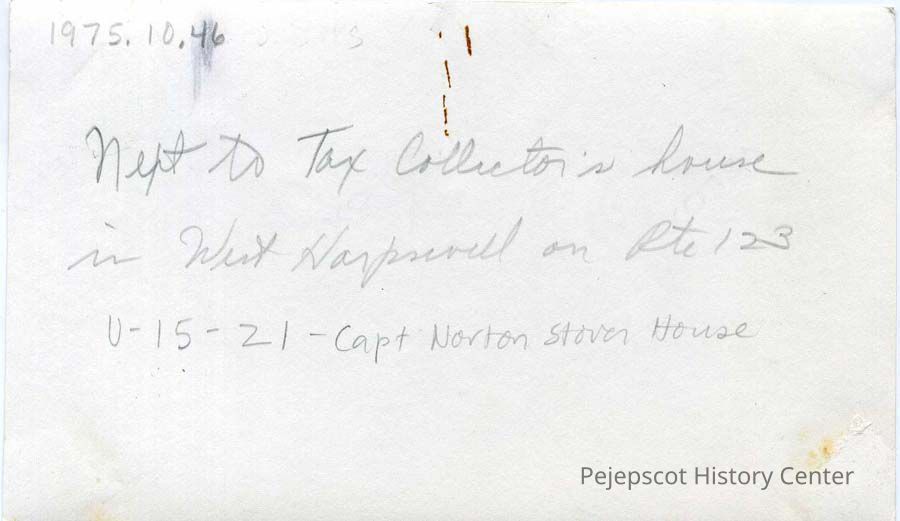 1975.10.46
Next to Tax Collector's house
in West Harpswell on Rte 123
U-15-21-Capt Norton Stover House
Pejepscot History Center